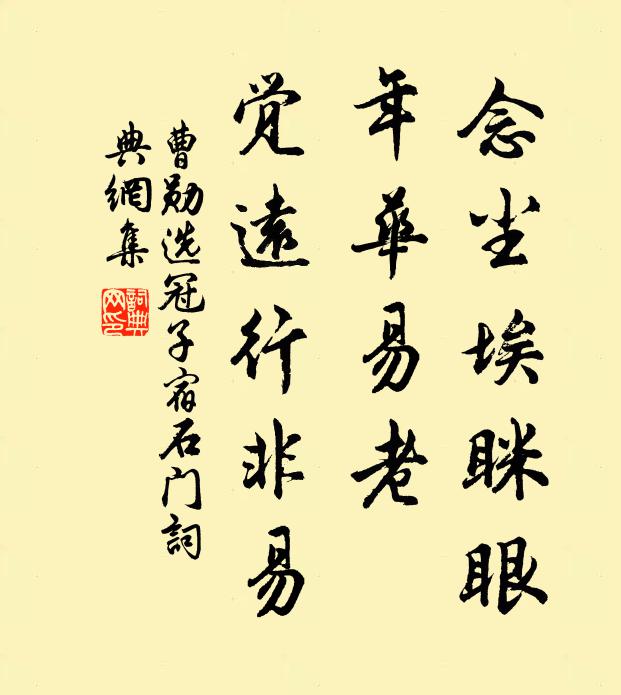 念尘埃眯眼
年華易老
觉遠行非易
曹勋选冠子宿石门詞
典網集
詞典网印